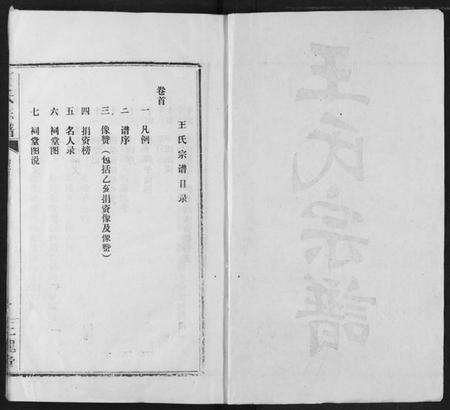 王氏宗譜
王氏宗谱目录
卷首
一 凡例
二 谱序
三 像赞（包括乙亥捐资像及像赞）
四 捐资榜
五 名人录
六 祠堂图
七 祠堂图说